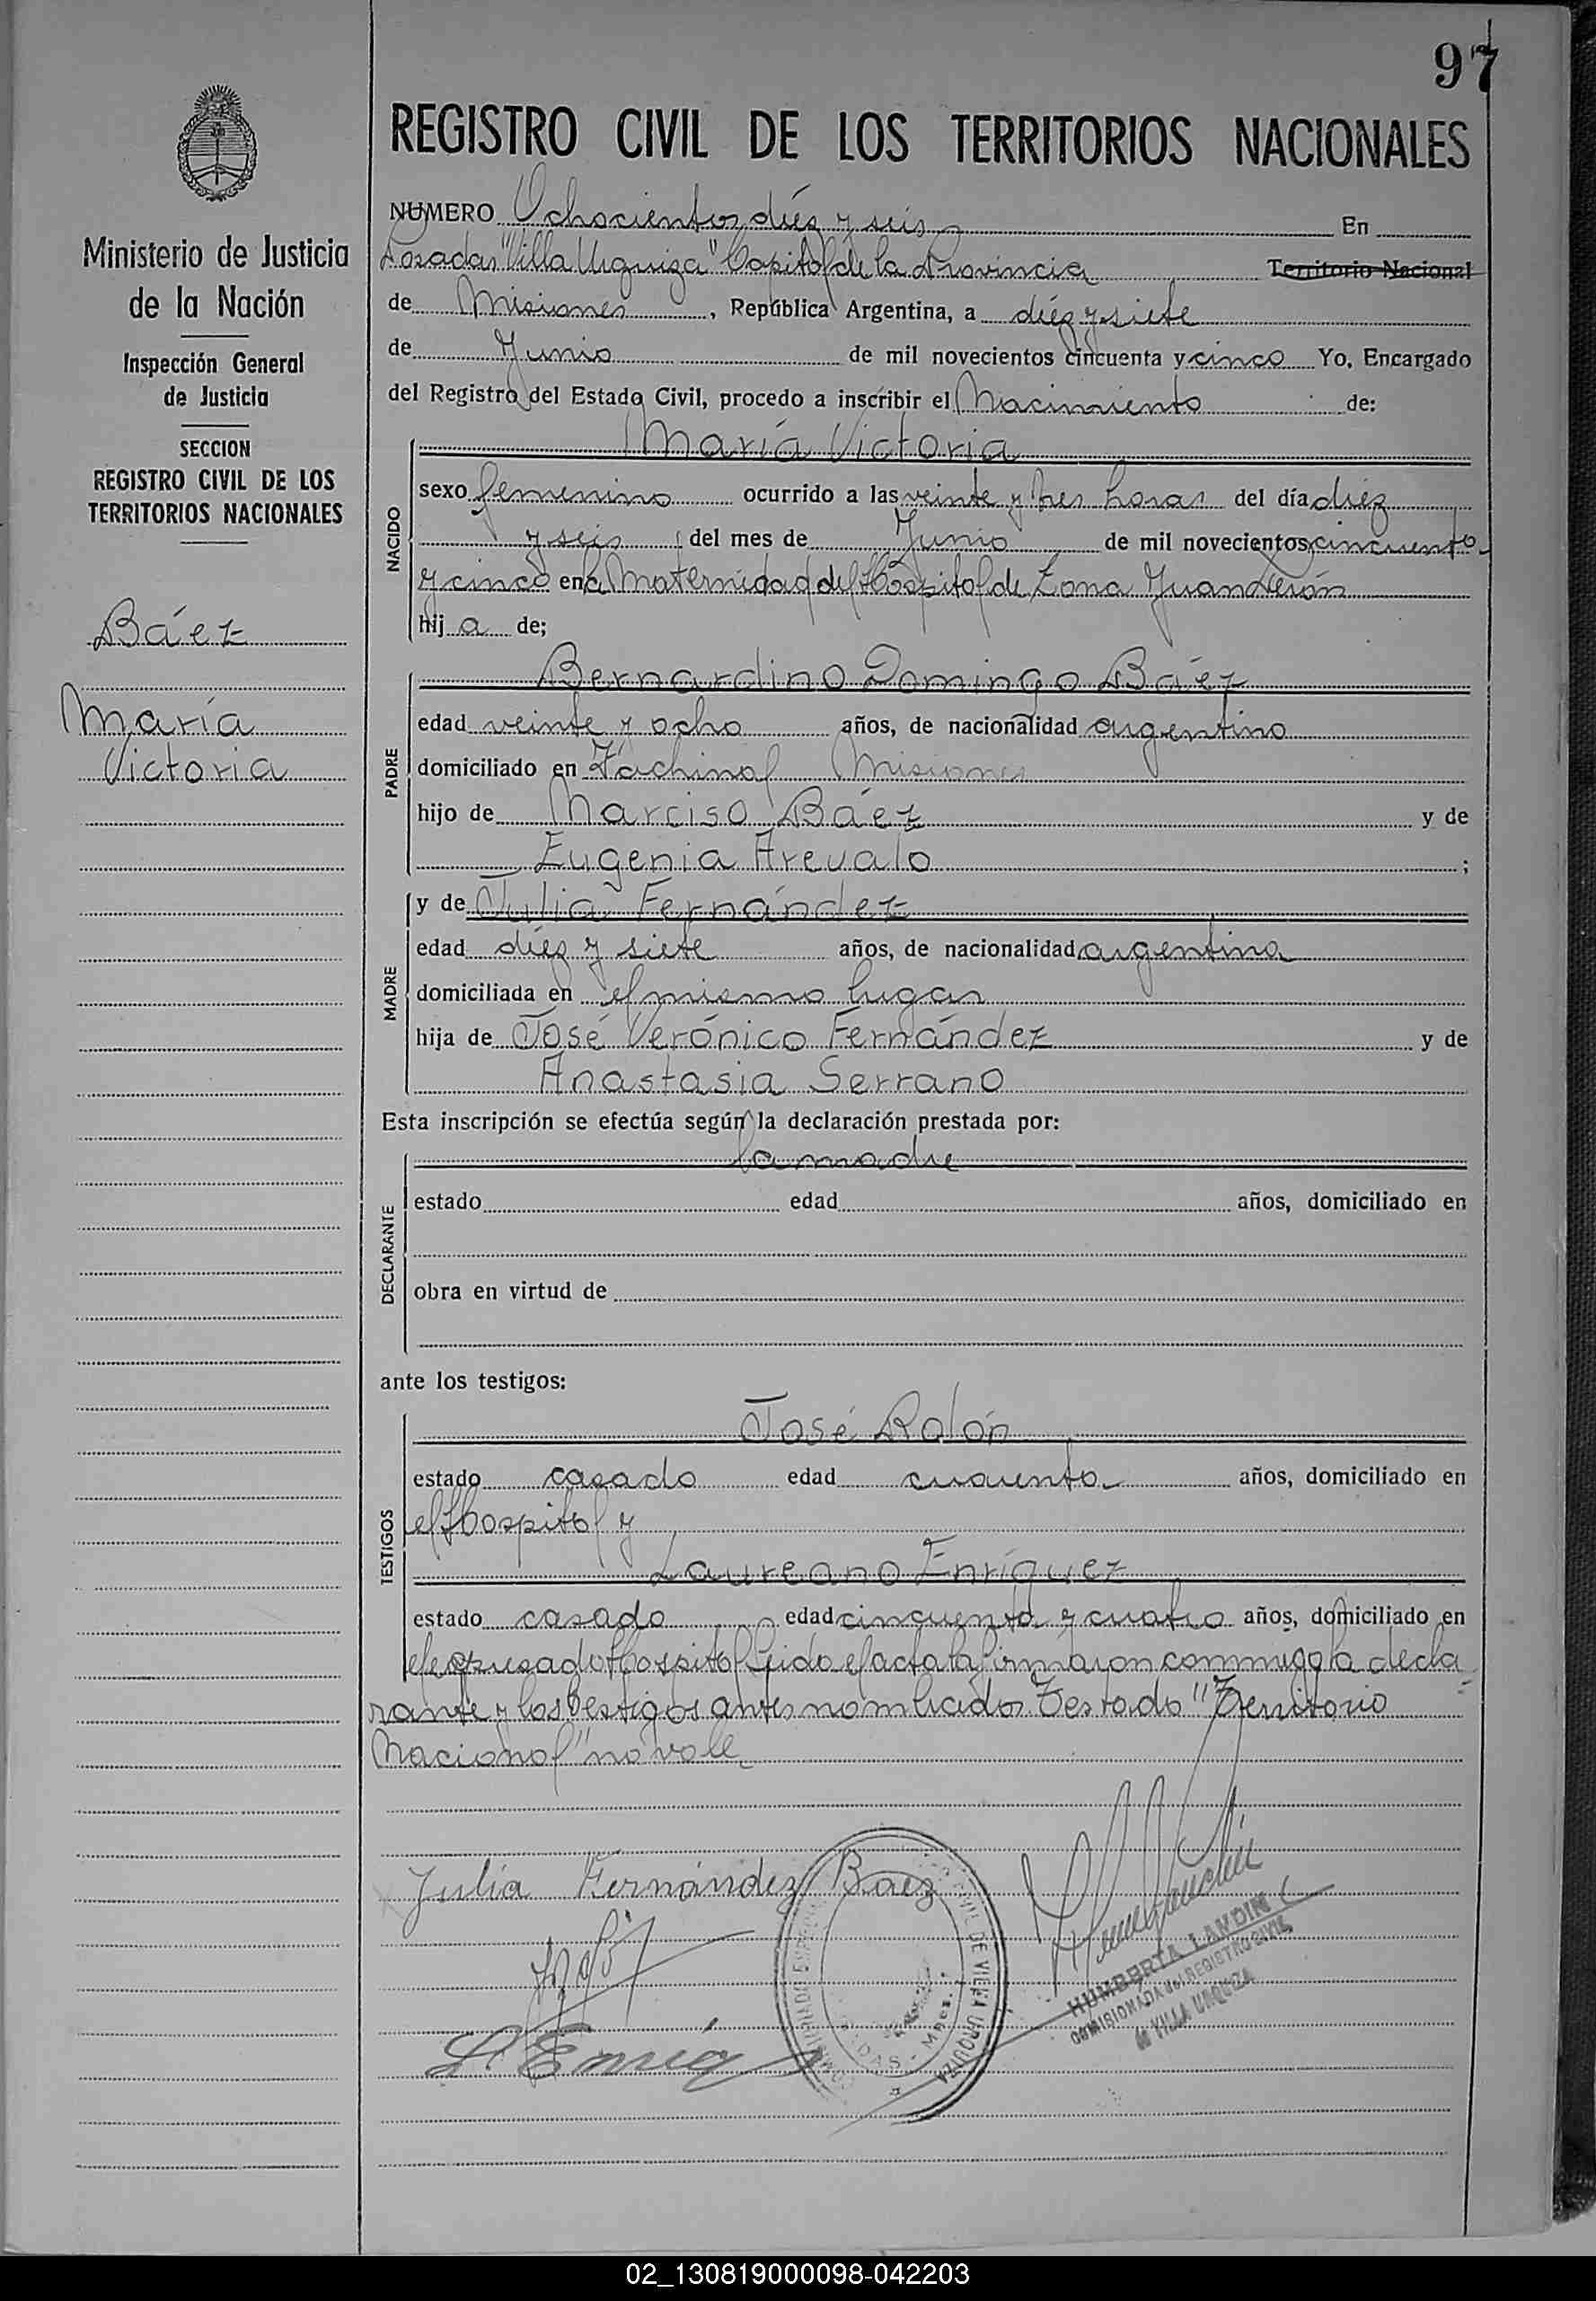 97
REGISTRO CIVIL DE LOS TERRITORIOS NACIONALES
Ministerio de Justicia
de la Nación
Inspección General
de Justicia
SECCION
REGISTRO CIVIL DE LOS
TERRITORIOS NACIONALES
Báez
María
Victoria
NUMERO Ochocientos diés y seis En
Posadas "Villa Urquiza" Capital de la Provincia Territorio Nacional
de Misiones, República Argentina, a diéz y siete
de Junio de mil novecientos cincuenta y cinco Yo, Encargado
del Registro del Estado Civil, procedo a inscribir el Nacimiento de:
NACIDO
María Victoria
sexo femenino ocurrido a las veinte y tres horas del día diéz
y seis del mes de Junio de mil novecientos cincuenta
y cinco en la Maternidad del Hospital de Zona Juan Perón
hij a de;
PADRE
Bernardino Domingo Báez
edad veinte y ocho años, de nacionalidad argentino
domiciliado en Fachinal Misiones
hijo de Narciso Báez y de
Eugenia Arevalo ;
MADRE
y de Julia Fernández
edad diéz y siete años, de nacionalidad argentina
domiciliada en el mismo lugar
hija de José Verónico Fernández y de
Anastasia Serrano
Esta inscripción se efectúa según la declaración prestada por:
DECLARANTE
la madre
estado edad años, domiciliado en
obra en virtud de
ante los testigos:
TESTIGOS
José Rolón
estado casado edad cuarenta años, domiciliado en
el Hospital y
Laureano Enríquez
estado casado edad cincuenta y cuatro años, domiciliado en
el expresado Hospital Leido el acta la firmaron conmigo la decla
rante y los testigos antes nombrados. Testado "Territorio
Nacional" no vale
Julia Fernández Baez
L. Enriq
DE VILLA URQUIZA
HUMBERTA LANDIN
COMISIONADA del REGISTRO CIVIL
de VILLA URQUIZA
02_130819000098-042203